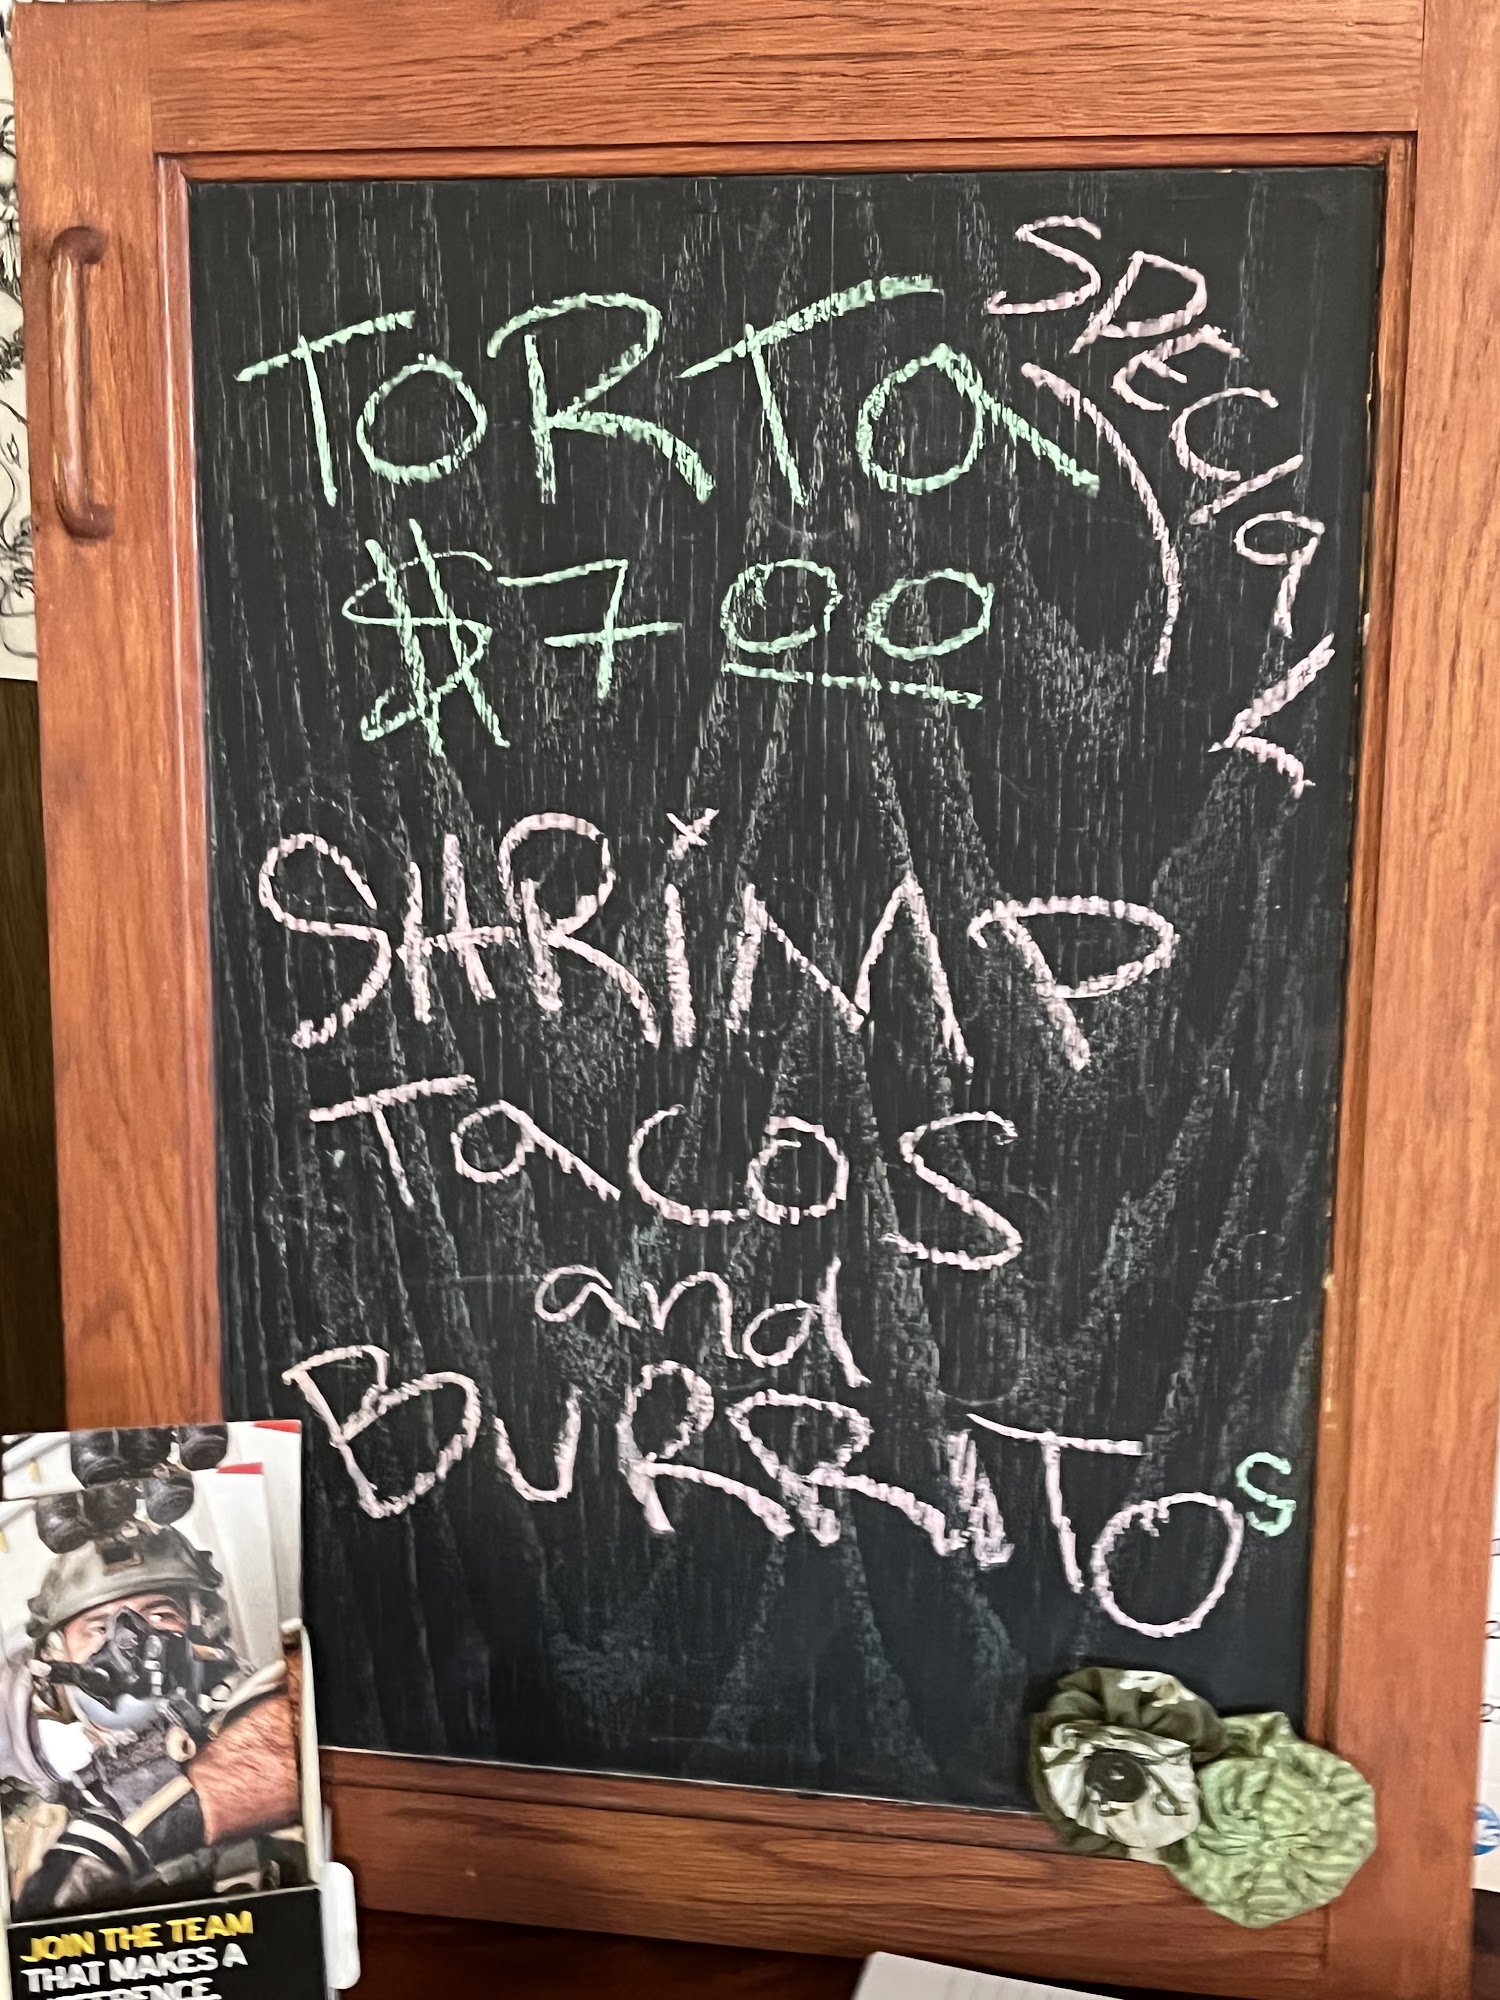 TORTa
SPECIaL
$7.00
SHRiMP
Tacos
and
BuRRITOs
JOIN THE TEAM
THAT MAKES A